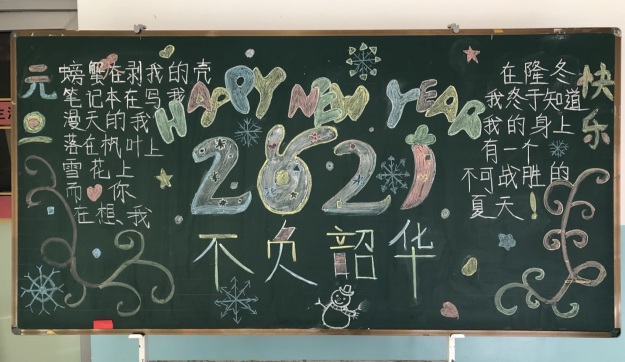 元旦
螃蟹在剥我的壳
笔记本在写我
漫天的我
落在枫叶上
雪花上
而你
在想我
HAPPY NEW YEAR
2021
不负韶华
在隆冬
我终于知道
我的身上
有一个
不可战胜的
夏天!
快乐